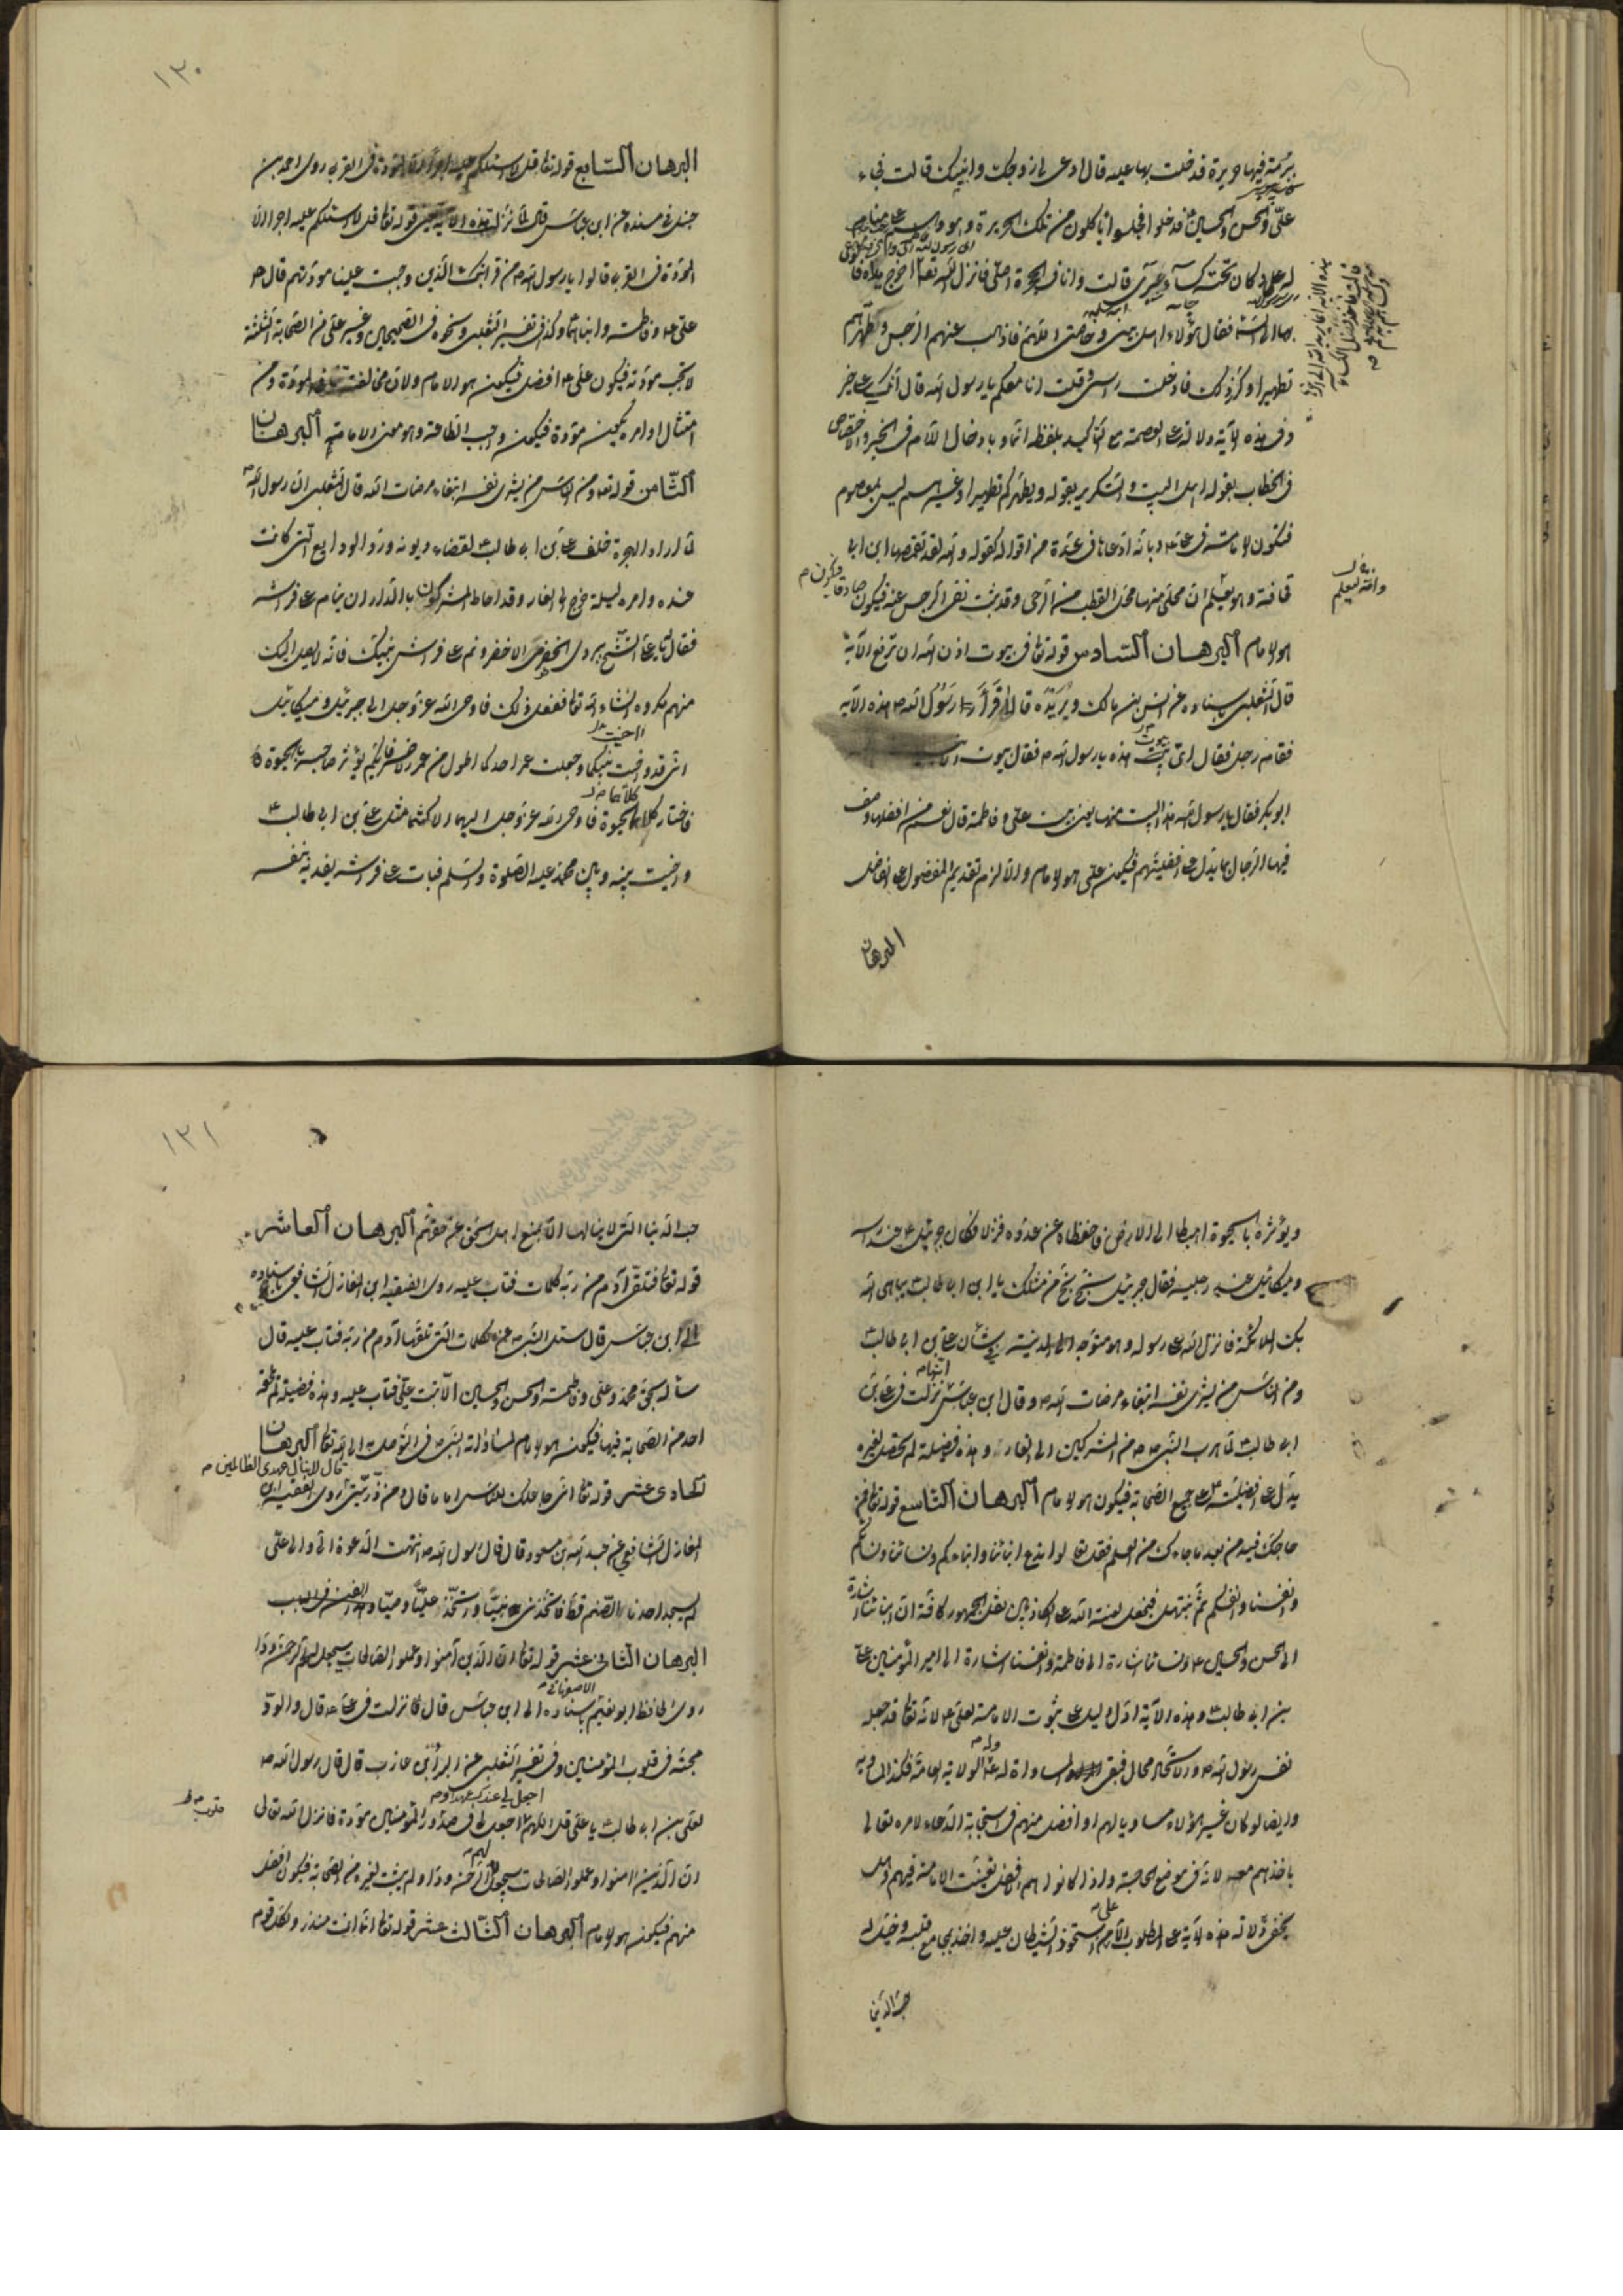 ببرمة فيها حريرة فدخلت بها عليه قال ادعى لى زوجك وابنيك قالت فجاء
على والحسن والحسين فدخلوا فجلسوا ياكلون من تلك الحريرة وهو
له على دكان تحته كساء خيبرى قالت وانا فى الحجرة اصلى فانزل الله تعالى
الى السماء فقال هؤلاء اهل بيتى وخاصتى اللهم فاذهب عنهم الرجس وطهرهم
تطهيرا وكرر ذلك فادخلت راسى وقلت وانا معكم يا رسول الله قال انك على خير
وفى هذه الآية دلالة على العصمة مع التاكيد بلفظه انما وبادخال اللام فى الخبر والاختصاص
فى الخطاب بقوله اهل البيت والتكرير بقوله ويطهركم تطهيرا وغيرهم ليس بمعصوم
فتكون الامامة فى على ع ولانه ادعاها فى عدة من اقواله كقوله والله لقد تقمصها ابن ابى
قحافة وهو يعلم ان محلى منها محل القطب من الرحى وقد ثبت نفى الرجس عنه فيكون صادقا فيكون
هو الامام البرهان السادس قوله تعالى فى بيوت اذن الله ان ترفع الآية
قال الثعلبى باسناده عن انس بن مالك وبريدة قالا قرأ رسول الله ص هذه الآية
فقام رجل فقال اى بيوت هذه يا رسول الله ص فقال بيوت
ابو بكر فقال يا رسول الله هذا البيت منها يعنى بيت على وفاطمة قال نعم من افضلها وصف
فيها الرجال بما يدل على افضليتهم فيكون على هو الامام والا لزم تقديم المفضول على الفاضل
البرهان
١٢٠
البرهان السابع قوله تعالى قل لا اسئلكم عليه اجرا الا المودة فى القربى روى احمد بن
حنبل فى مسنده عن ابن عباس قال لما نزل قوله تعالى قل لا اسئلكم عليه اجرا الا
المودة فى القربى قالوا يا رسول الله من قرابتك الذين وجبت علينا مودتهم قال ص
على ع وفاطمة وابناهما وكذا فى تفسير الثعلبى ونحوه فى الصحيحين وغير على من الصحابة الثلثة
لا تجب مودته فيكون على ع افضل فيكون هو الامام ولان مخالفته تنافى المودة ومن
امتثال اوامره يكون مودة فيكون واجب الطاعة وهو معنى الامامة البرهان
الثامن قوله تعالى ومن الناس من يشرى نفسه ابتغاء مرضات الله قال الثعلبى ان رسول الله ص
لما اراد الهجرة خلف على بن ابى طالب ع لقضاء ديونه ورد الودايع التى كانت
عنده وامره ليلة خرج الى الغار وقد احاط المشركون بالدار ان ينام على فراشه
فقال له يا على اتشح ببردى الحضرمى الاخضر ونم على فراشى فانه لا يصل اليك
منهم مكروه انشاء الله تعالى ففعل ذلك فاوحى الله عز وجل الى جبرئيل وميكائيل
انى قد واخيت بينكما وجعلت عمر احدكما اطول من عمر الآخر فايكم يؤثر صاحبه بالحيوة
فاختار كلاهما الحيوة فاوحى الله عز وجل اليهما الا كنتما مثل على بن ابى طالب ع
واخيت بينه وبين محمد عليه الصلوة والسلم فبات على فراشه يفديه بنفسه
ويؤثره بالحيوة اهبطا الى الارض فاحفظاه عن عدوه فنزلا فكان جبرئيل ع عند راسه
وميكائيل عند رجليه فقال جبرئيل بخ بخ من مثلك يا ابن ابى طالب يباهى الله
بك الملائكة فانزل الله على رسوله وهو متوجه الى المدينة فى شان على بن ابى طالب ع
ومن الناس من يشرى نفسه ابتغاء مرضات الله وقال ابن عباس انها نزلت فى على بن
ابى طالب ع لما هرب النبى ص من المشركين الى الغار وهذه فضيلة لم تحصل لغيره
يدل على افضليته على جميع الصحابة فيكون هو الامام البرهان التاسع قوله تعالى فمن
حاجك فيه من بعد ما جاءك من العلم فقل تعالوا ندع ابناءنا وابناءكم ونساءنا ونساءكم
وانفسنا وانفسكم ثم نبتهل فنجعل لعنة الله على الكاذبين نقل الجمهور كافة ان ابناءنا اشارة
الى الحسن والحسين ع ونساءنا اشارة الى فاطمة وانفسنا اشارة الى امير المؤمنين على
بن ابى طالب ع وهذه الآية ادل دليل على ثبوت الامامة لعلى ع لانه تعالى قد جعله
نفس رسول الله ص والاتحاد محال فبقى المساواة له ع الولاية العامة فكذا لمساويه
وايضا لو كان غير هؤلاء مساويا لهم او افضل منهم فى استجابة الدعاء لامره تعالى
باخذهم معه لانه فى موضع الحاجة واذا كانوا هم افضل تعينت الامامة فيهم وهل
يخفى دلالة هذه الآية على المطلوب الا على من استحوذ الشيطان عليه واخذ بمجامع قلبه وخيل له
حب الدنيا
١٢١
حب الدنيا التى لا ينالها الا بمنع اهل الحق عن حقهم البرهان العاشر
قوله تعالى فتلقى آدم من ربه كلمات فتاب عليه روى الفقيه ابن المغازلى الشافعى باسناده
الى ابن عباس قال سئل النبى ص عن الكلمات التى تلقاها آدم من ربه فتاب عليه قال
سأله بحق محمد وعلى وفاطمة والحسن والحسين الا تبت على فتاب عليه وهذه فضيلة لم يلحقه
احد من الصحابة فيها فيكون هو الامام لمساواته النبى ص فى التوسل به الى الله تعالى البرهان
الحادى عشر قوله تعالى انى جاعلك للناس اماما قال ومن ذريتى قال لا ينال عهدى الظالمين روى الفقيه ابن
المغازلى الشافعى عن عبد الله بن مسعود قال قال رسول الله ص انتهت الدعوة الى والى على
لم يسجد احدنا لصنم قط فاتخذنى نبيا واتخذ عليا وصيا
البرهان الثانى عشر قوله تعالى ان الذين آمنوا وعملوا الصالحات سيجعل لهم الرحمن ودا
روى الحافظ ابو نعيم الاصفهانى باسناده الى ابن عباس قال نزلت فى على ع قال والود
محبة فى قلوب المؤمنين وفى تفسير الثعلبى عن البراء بن عازب قال قال رسول الله ص
لعلى بن ابى طالب يا على قل اللهم اجعل لى عندك عهدا واجعل لى فى صدور المؤمنين مودة فانزل الله تعالى
ان الذين امنوا وعملوا الصالحات سيجعل لهم الرحمن ودا ولم يثبت لغيره من الصحابة فيكون افضل
منهم فيكون هو الامام البرهان الثالث عشر قوله تعالى انما انت منذر ولكل قوم